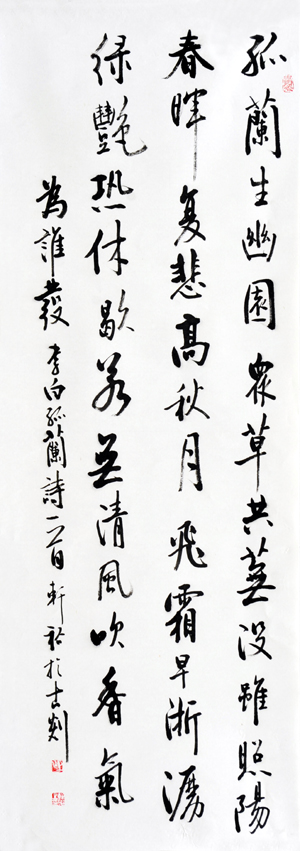 孤蘭生幽園眾草共蕪没雖照陽
春暉复悲高秋月飛霜早淅瀝
緑艷恐休歇若无清風吹香氣
為誰發 李白孤蘭詩一首 軒 於古剡